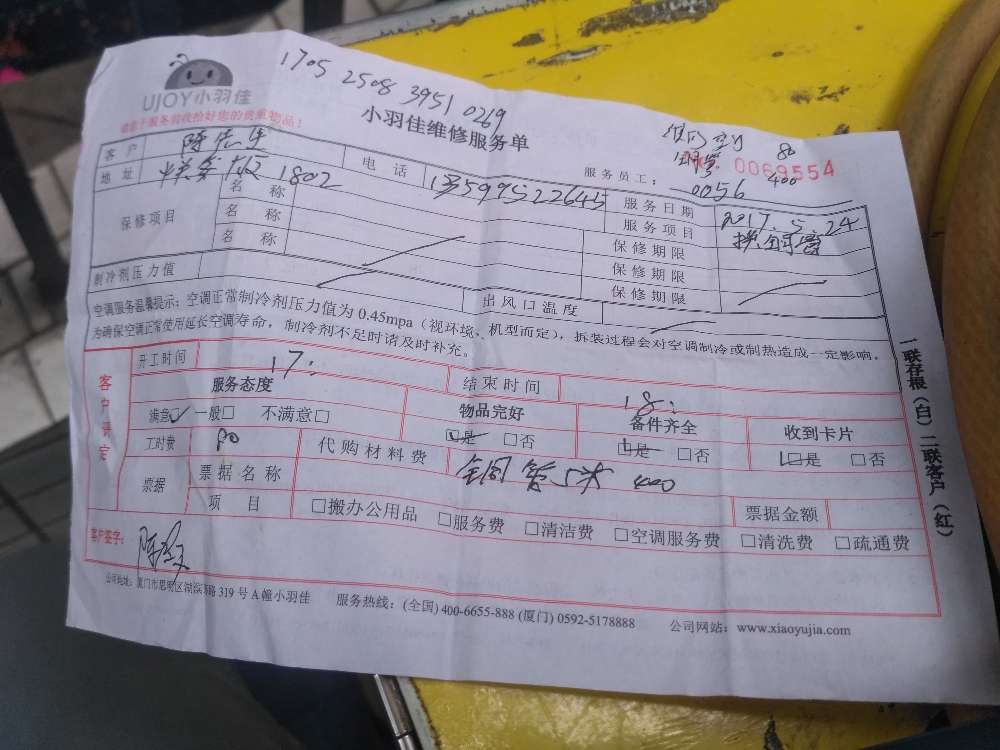 1705 2508 3951 0269
UJOY小羽佳
小羽佳维修服务单
80
400
No. 0069554
客户 陈先生 电话 13599522645 服务员工: 0056 服务日期 2017.5.24
地址 1802 服务项目 换铜管
保修项目 名称 保修期限
名称 保修期限
名称 保修期限
制冷剂压力值 出风口温度
空调服务温馨提示: 空调正常制冷剂压力值为0.45mpa(视环境、机型而定), 拆装过程会对空调制冷或制热造成一定影响。
为确保空调正常使用延长空调寿命, 制冷剂不足时请及时补充。
客户评定
开工时间 17: 结束时间 18:
服务态度 物品完好 备件齐全 收到卡片
满意☑ 一般□ 不满意□ □是 □否 □是 □否 □是 □否
工时费 80 代购材料费 全铜管5米 400
票据 票据名称 票据金额
项目 □搬办公用品 □服务费 □清洁费 □空调服务费 □清洗费 □疏通费
客户签字:
公司地址: 厦门市思明区湖滨东路319号A幢小羽佳 服务热线: (全国) 400-6655-888 (厦门) 0592-5178888 公司网站: www.xiaoyujia.com
一联存根(白) 二联客户(红)